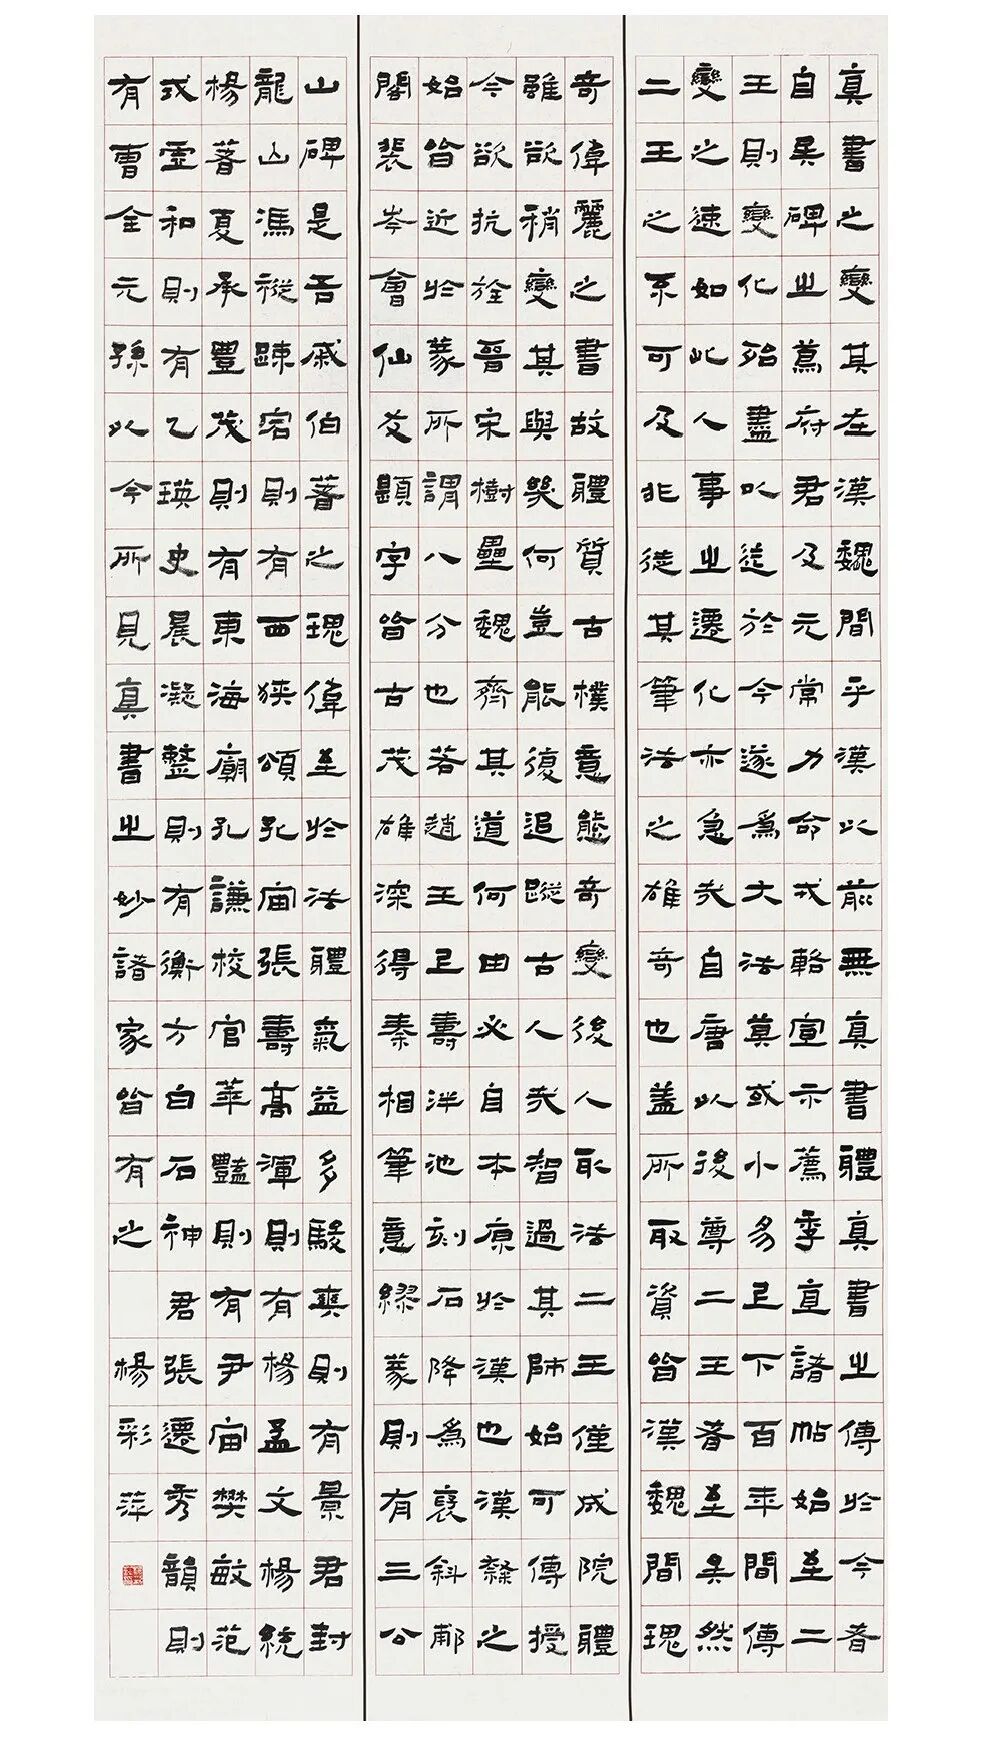 真書之變其在漢魏間乎漢以前無真書體真書之傳於今者
自吳碑之葛府君及元常力命戎輅宣示薦季直諸帖始至二
王則變化殆盡以迄於今遂為大法莫或小易已下百年間傳
變之速如此人事之遷化亦急哉自唐以後尊二王者至矣然
二王之不可及非徒其筆法之雄奇也蓋所取資皆漢魏間瑰
奇偉麗之書故體質古樸意態奇變後人取法二王僅成院體
雖欲稍變其與幾何豈能復追蹤古人哉智過其師始可傳授
今欲抗於晉宋樹壘魏齊其道何由必自本原於漢也漢隸之
始皆近於篆所謂八分也若趙王上壽泮池刻石降為褒斜郙
閣裴岑會仙友題字皆古茂雄深得秦相筆意繆篆則有三公
山碑是吾戚伯著之瑰偉至於法體氣益多駿爽則有景君封
龍山馮緄疏宕則有西狹頌孔宙張壽高渾則有楊孟文楊統
楊著夏承豐茂則有東海廟孔謙校官華豔則有尹宙樊敏范
式虛和則有乙瑛史晨凝整則有衡方白石神君張遷秀韻則
有曹全元孫以今所見真書之妙諸家皆有之 楊彩萍